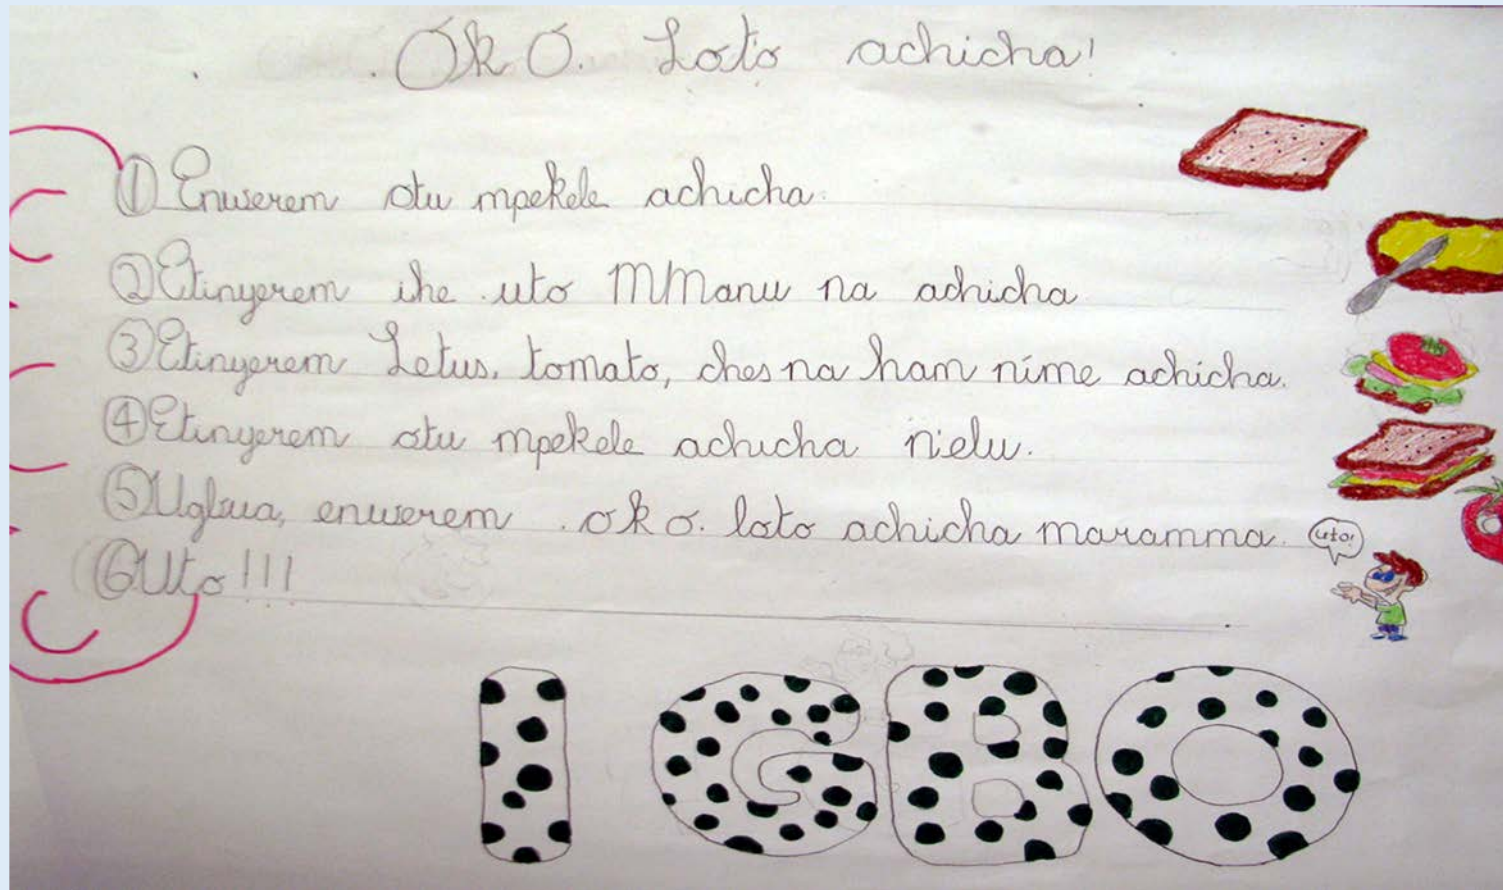 OK O. Loto achicha!
① Enwerem otu mpekele achicha.
② Etinyerem ihe uto MManu na achicha
③ Etinyerem Letus, tomato, ches na ham nime achicha.
④ Etinyerem otu mpekele achicha n'elu.
⑤ Ugbua, enwerem . ok o. loto achicha maramma.
uto!
⑥ Uto!!!
IGBO